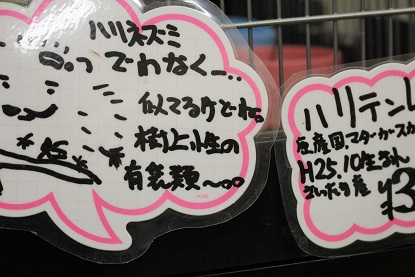 ハリネズミ
でわなくー…
似てるけどね。
樹上性の
有袋類〜〜
ハリテン
原産国、マダガースカ
H25.10生まれ
さいたま産
¥3